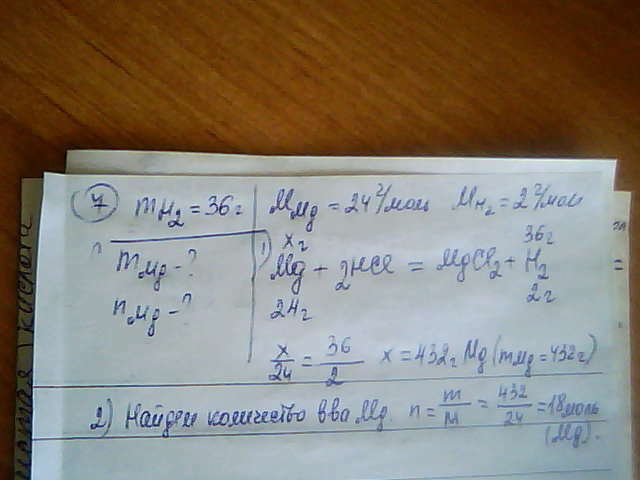 7 mH₂ = 36г
mMg - ?
nMg - ?
MMg = 24 г/моль MH₂ = 2 г/моль
xг 36г
1) Mg + 2HCl = MgCl₂ + H₂
24г 2г
x/24 = 36/2 x = 432г Mg (mMg = 432г)
2) Найдем количество вва Mg. n = m/M = 432/24 = 18 моль
(Mg).